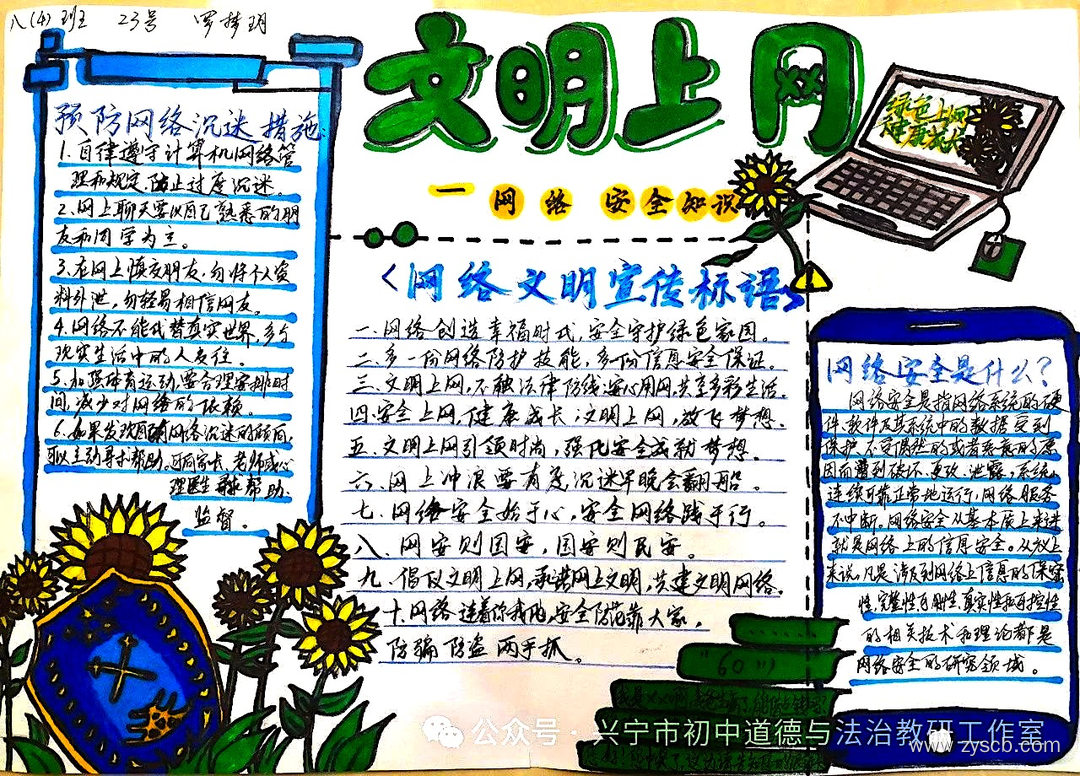 八(4)班 23号 罗梦玥
文明上网
绿色上网
健康成长
一网络安全知识
预防网络沉迷措施:
1.自律遵守计算机网络管
理和规定,防止过度沉迷。
2.网上聊天要以自己熟悉的朋
友和同学为主。
3.在网上慎交朋友,勿将个人资
料外泄,勿轻易相信网友。
4.网络不能代替真实世界,多分
现实生活中的人交往。
5.加强体育运动,要合理安排时
间,减少对网络的依赖。
6.如果发现自己有网络沉迷的倾向,
可以主动寻求帮助。可向家长、老师或心
理医生寻求帮助
监督。
<网络文明宣传标语>
一.网络创造幸福时代,安全守护绿色家园。
二.多一份网络防护技能,多份信息安全保证。
三.文明上网,不触法律防线;安心用网,共享多彩生活。
四.安全上网,健康成长;文明上网,放飞梦想.
五.文明上网引领时尚,强化安全成就梦想.
六.网上冲浪要有度,沉迷早晚会翻船。
七.网络安全始于心,安全网络践于行。
八.网安则国安,国安则民安。
九.倡议文明上网,承诺网上文明,共建文明网络.
十.网络连着你我他,安全防范靠大家.
防骗防盗两手抓。
网络安全是什么?
网络安全是指网络系统的硬
件、软件及其系统中的数据受到
保护,不受偶然的或者恶意的原
因而遭到破坏、更改、泄露,系统
连续可靠正常地运行,网络服务
不中断。网络安全从其本质上来讲
就是网络上的信息安全。从广义上
来说,凡是涉及到网络上信息的保密
性、完整性、可用性、真实性和可控性
的相关技术和理论都是
网络安全的研究领域。
公众号·兴宁市初中道德与法治教研工作室
www.zyscb.com